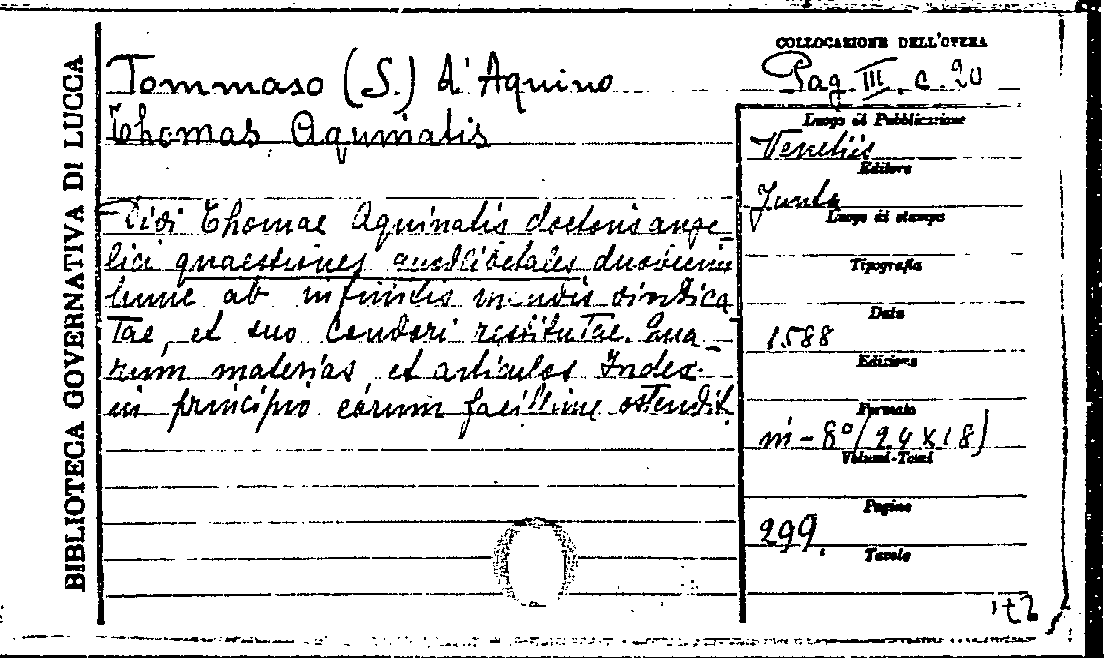 BIBLIOTECA GOVERNATIVA DI LUCCA
Tommaso (S.) d'Aquino
Thomas Aquinatis
Divi Thomae Aquinatis doctoris ange-
lici quaestiones quodlibetales duodecim
hunc ab infinitis mendis vindica
tae, et suo candori restitutae. Qua-
rum materias, et articulos Index
in principio earum facillime ostendit.
COLLOCAZIONE DELL'OPERA
Pag. III. c. 20
Luogo di Pubblicazione
Venetiis
Editore
Junta
Luogo di stampa
Tipografia
Data
1588
Edizione
Formato
in-8° (24x18)
Volumi-Tomi
Pagine
299.
Tavole